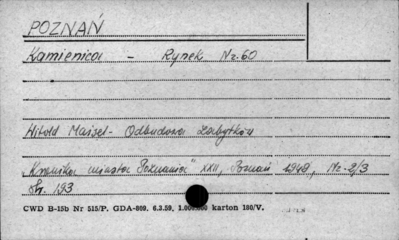 POZNAŃ
Kamienica - Rynek Nr. 60
Witold Maisel - Odbudowa Zabytków
Kronika miasta Poznania" XXII, Poznań 1949, Nr-2/3
Str. 193
CWD B-15b Nr 515/P. GDA-809. 6.3.59, 1.000.000 karton 180/V.